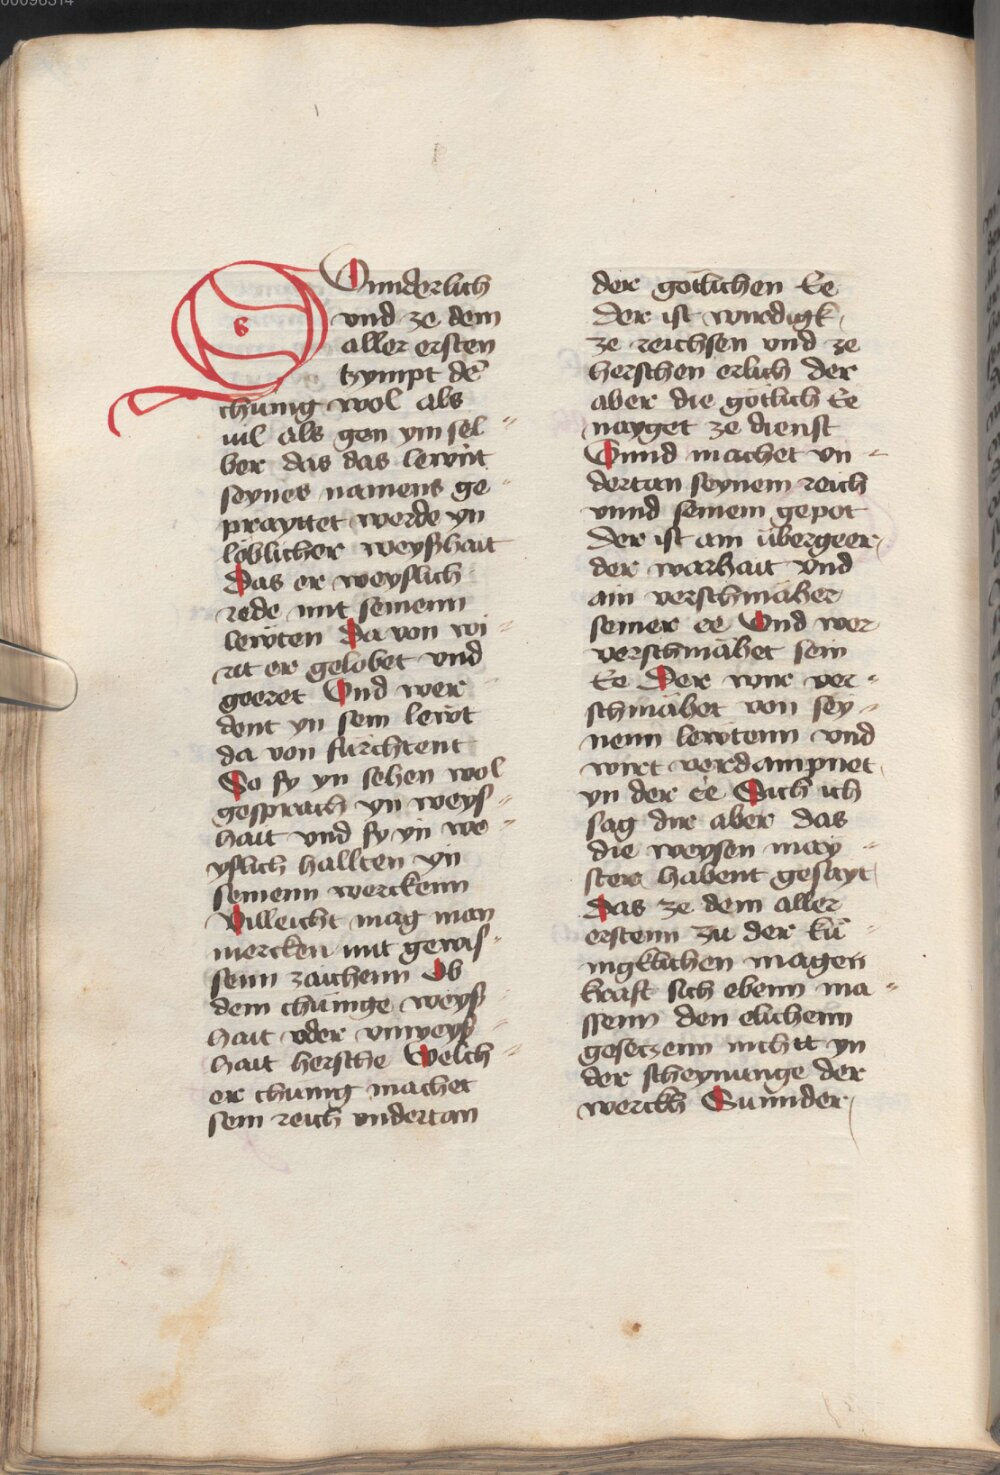 00096314
SOunderlich
vnd ze dem
aller ersten
tzympt dē
chunig wol als
uil als gen ym sel⸗
ber das das lewnt
seynes namens ge⸗
prayttet werde yn
löblicher weyßhait
Das er weyslich
rede mit seinenn
lewten Da von wi⸗
rt er gelobet vnd
geeret Vnd wer⸗
dent yn sein lewt
da von fürchtent
So sy yn sehen wol
gesprach yn weys⸗
hait vnd sy yn we⸗
yslich hallten yn
seinenn werckenn
Villeicht mag man
mercken mit gewis⸗
senn zaichenn Ob
dem chünige weyß⸗
hait oder vnweyß⸗
hait hersche Welch⸗
er chunig machet
sein reich vndertan
der götlichen Ee
Der ist wirdigk
ze reichsen vnd ze
herschen erlich der
aber die götlich Ee
nayget ze dienst
Vnnd machet vn⸗
dertan seynem reich
vnnd seinem gepot
Der ist ain übergeer
der warhait vnd
ain verschmäher
seiner ee Vnd wer
verschmähet sein
Ee Der wir ver⸗
schmähet von sey⸗
nenn lewtenn vnd
wirt verdampnet
yn der ee Sich ich
sag dir aber das
die weysen may⸗
ster habent gesayt
Das ze dem aller
erstenn zu der kü⸗
nigklichen magen
kraft sich ebenn ma⸗
ssenn den elichenn
gesetzenn nichtt yn
der scheynunge der
werckh Sunnder